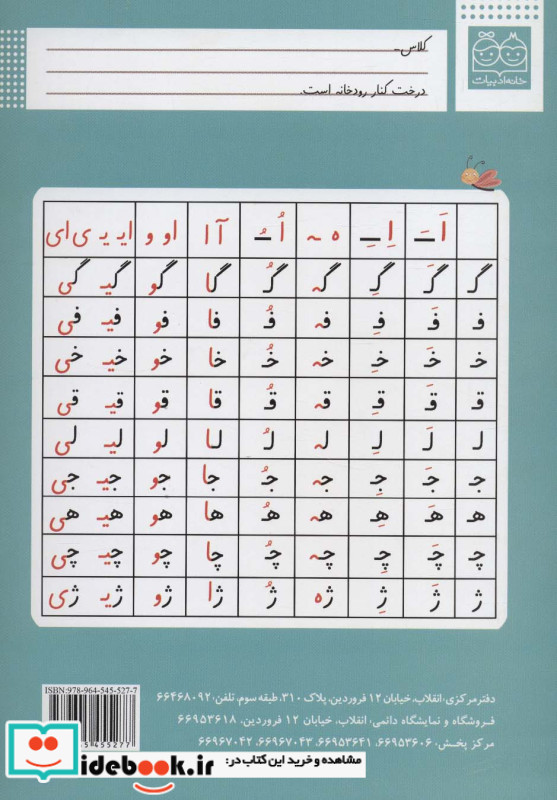 خانه ادبیات
کلاس ـ
درخت کنار رودخانه است.
اَ ــَـ اِ ــِـ ه ـه اُ ــُـ آ ا او و ایـ یـ ی ای
گـ گَـ گِـ گه گُـ گا گو گیـ گی
فـ فَـ فِـ فه فُـ فا فو فیـ فی
خـ خَـ خِـ خه خُـ خا خو خیـ خی
قـ قَـ قِـ قه قُـ قا قو قیـ قی
لـ لَـ لِـ له لُـ لا لو لیـ لی
جـ جَـ جِـ جه جُـ جا جو جیـ جی
هـ هَـ هِـ هه هُـ ها هو هیـ هی
چـ چَـ چِـ چه چُـ چا چو چیـ چی
ژ ژَ ژِ ژه ژُ ژا ژو ژیـ ژی
دفتر مرکزی: انقلاب، خیابان ۱۲ فروردین، پلاک ۳۱۰، طبقه سوم، تلفن: ۶۶۴۶۸۰۹۲
فروشگاه و نمایشگاه دائمی: انقلاب، خیابان ۱۲ فروردین، ۶۶۹۵۳۶۱۸
مرکز پخش: ۶۶۹۵۳۶۰۶، ۶۶۹۵۳۶۴۱، ۶۶۹۶۷۰۴۳، ۶۶۹۶۷۰۴۲
ISBN: 978-964-545-527-7
455277
مشاهده و خرید این کتاب در:
idebook.ir